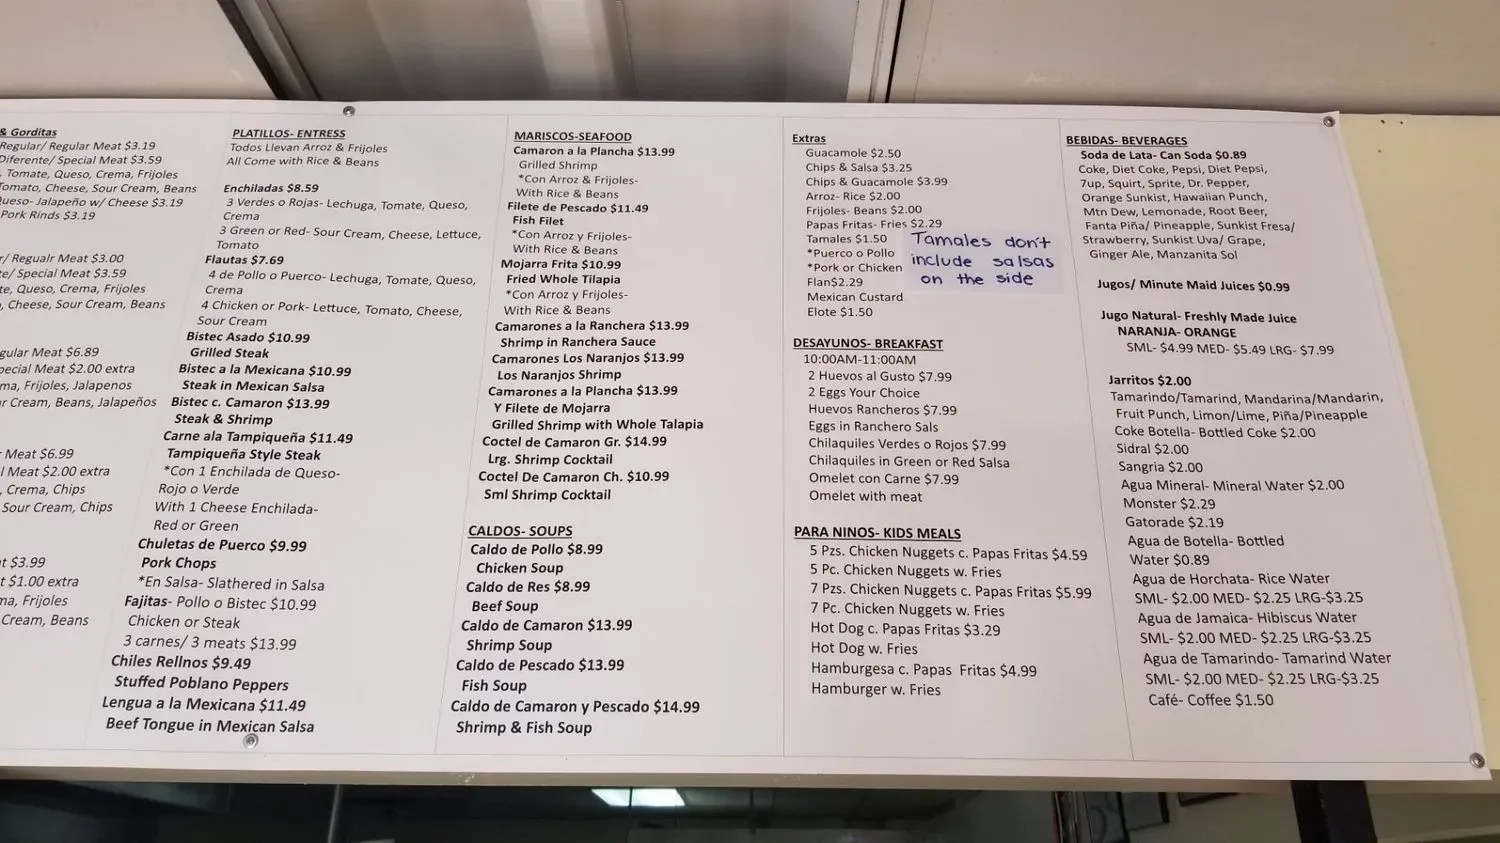 & Gorditas
Regular/ Regular Meat $3.19
Diferente/ Special Meat $3.59
, Tomate, Queso, Crema, Frijoles
Tomato, Cheese, Sour Cream, Beans
Queso- Jalapeño w/ Cheese $3.19
Pork Rinds $3.19
r/ Regualr Meat $3.00
te/ Special Meat $3.59
te, Queso, Crema, Frijoles
, Cheese, Sour Cream, Beans
gular Meat $6.89
pecial Meat $2.00 extra
ma, Frijoles, Jalapenos
r Cream, Beans, Jalapeños
r Meat $6.99
l Meat $2.00 extra
, Crema, Chips
Sour Cream, Chips
t $3.99
t $1.00 extra
ma, Frijoles
Cream, Beans
PLATILLOS- ENTRESS
Todos Llevan Arroz & Frijoles
All Come with Rice & Beans
Enchiladas $8.59
3 Verdes o Rojas- Lechuga, Tomate, Queso,
Crema
3 Green or Red- Sour Cream, Cheese, Lettuce,
Tomato
Flautas $7.69
4 de Pollo o Puerco- Lechuga, Tomate, Queso,
Crema
4 Chicken or Pork- Lettuce, Tomato, Cheese,
Sour Cream
Bistec Asado $10.99
Grilled Steak
Bistec a la Mexicana $10.99
Steak in Mexican Salsa
Bistec c. Camaron $13.99
Steak & Shrimp
Carne ala Tampiqueña $11.49
Tampiqueña Style Steak
*Con 1 Enchilada de Queso-
Rojo o Verde
With 1 Cheese Enchilada-
Red or Green
Chuletas de Puerco $9.99
Pork Chops
*En Salsa- Slathered in Salsa
Fajitas- Pollo o Bistec $10.99
Chicken or Steak
3 carnes/ 3 meats $13.99
Chiles Rellnos $9.49
Stuffed Poblano Peppers
Lengua a la Mexicana $11.49
Beef Tongue in Mexican Salsa
MARISCOS-SEAFOOD
Camaron a la Plancha $13.99
Grilled Shrimp
*Con Arroz & Frijoles-
With Rice & Beans
Filete de Pescado $11.49
Fish Filet
*Con Arroz y Frijoles-
With Rice & Beans
Mojarra Frita $10.99
Fried Whole Tilapia
*Con Arroz y Frijoles-
With Rice & Beans
Camarones a la Ranchera $13.99
Shrimp in Ranchera Sauce
Camarones Los Naranjos $13.99
Los Naranjos Shrimp
Camarones a la Plancha $13.99
Y Filete de Mojarra
Grilled Shrimp with Whole Talapia
Coctel de Camaron Gr. $14.99
Lrg. Shrimp Cocktail
Coctel De Camaron Ch. $10.99
Sml Shrimp Cocktail
CALDOS- SOUPS
Caldo de Pollo $8.99
Chicken Soup
Caldo de Res $8.99
Beef Soup
Caldo de Camaron $13.99
Shrimp Soup
Caldo de Pescado $13.99
Fish Soup
Caldo de Camaron y Pescado $14.99
Shrimp & Fish Soup
Extras
Guacamole $2.50
Chips & Salsa $3.25
Chips & Guacamole $3.99
Arroz- Rice $2.00
Frijoles- Beans $2.00
Papas Fritas- Fries $2.29
Tamales $1.50
*Puerco o Pollo
*Pork or Chicken
Flan$2.29
Mexican Custard
Elote $1.50
Tamales don't
include salsas
on the side
DESAYUNOS- BREAKFAST
10:00AM-11:00AM
2 Huevos al Gusto $7.99
2 Eggs Your Choice
Huevos Rancheros $7.99
Eggs in Ranchero Sals
Chilaquiles Verdes o Rojos $7.99
Chilaquiles in Green or Red Salsa
Omelet con Carne $7.99
Omelet with meat
PARA NINOS- KIDS MEALS
5 Pzs. Chicken Nuggets c. Papas Fritas $4.59
5 Pc. Chicken Nuggets w. Fries
7 Pzs. Chicken Nuggets c. Papas Fritas $5.99
7 Pc. Chicken Nuggets w. Fries
Hot Dog c. Papas Fritas $3.29
Hot Dog w. Fries
Hamburgesa c. Papas Fritas $4.99
Hamburger w. Fries
BEBIDAS- BEVERAGES
Soda de Lata- Can Soda $0.89
Coke, Diet Coke, Pepsi, Diet Pepsi,
7up, Squirt, Sprite, Dr. Pepper,
Orange Sunkist, Hawaiian Punch,
Mtn Dew, Lemonade, Root Beer,
Fanta Piña/ Pineapple, Sunkist Fresa/
Strawberry, Sunkist Uva/ Grape,
Ginger Ale, Manzanita Sol
Jugos/ Minute Maid Juices $0.99
Jugo Natural- Freshly Made Juice
NARANJA- ORANGE
SML- $4.99 MED- $5.49 LRG- $7.99
Jarritos $2.00
Tamarindo/Tamarind, Mandarina/Mandarin,
Fruit Punch, Limon/Lime, Piña/Pineapple
Coke Botella- Bottled Coke $2.00
Sidral $2.00
Sangria $2.00
Agua Mineral- Mineral Water $2.00
Monster $2.29
Gatorade $2.19
Agua de Botella- Bottled
Water $0.89
Agua de Horchata- Rice Water
SML- $2.00 MED- $2.25 LRG-$3.25
Agua de Jamaica- Hibiscus Water
SML- $2.00 MED- $2.25 LRG-$3.25
Agua de Tamarindo- Tamarind Water
SML- $2.00 MED- $2.25 LRG-$3.25
Café- Coffee $1.50